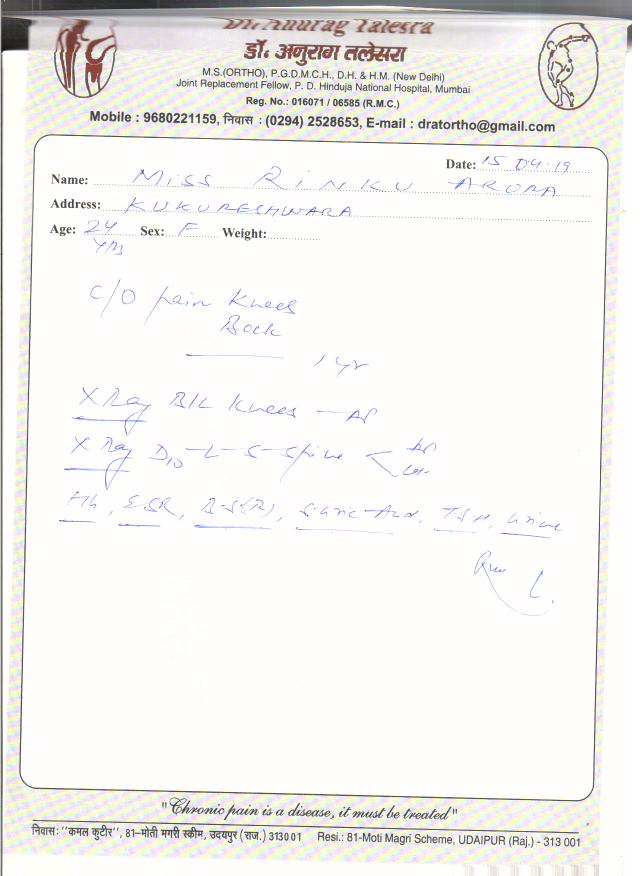 Dr. Anurag Talesra
डॉ. अनुराग तलेसरा
M.S.(ORTHO), P.G.D.M.C.H., D.H. & H.M. (New Delhi)
Joint Replacement Fellow, P. D. Hinduja National Hospital, Mumbai
Reg. No.: 016071 / 06585 (R.M.C.)
Mobile : 9680221159, निवास : (0294) 2528653, E-mail : dratortho@gmail.com
Date: 15 04.19
Name: MISS RINKU ARORA
Address: KUKURESHWARA
Age: 24 yrs Sex: F Weight:
C/O pain Knees
Back
1 yr
X Ray B/L Knees – AP
X Ray D10-L-S-Spine < AP
Lat
Hb, ESR, B.S(R), S. Uric Acid, TSH, Urine
"Chronic pain is a disease, it must be treated"
निवास: "कमल कुटीर", 81–मोती मगरी स्कीम, उदयपुर (राज.) 313001 Resi.: 81-Moti Magri Scheme, UDAIPUR (Raj.) - 313 001